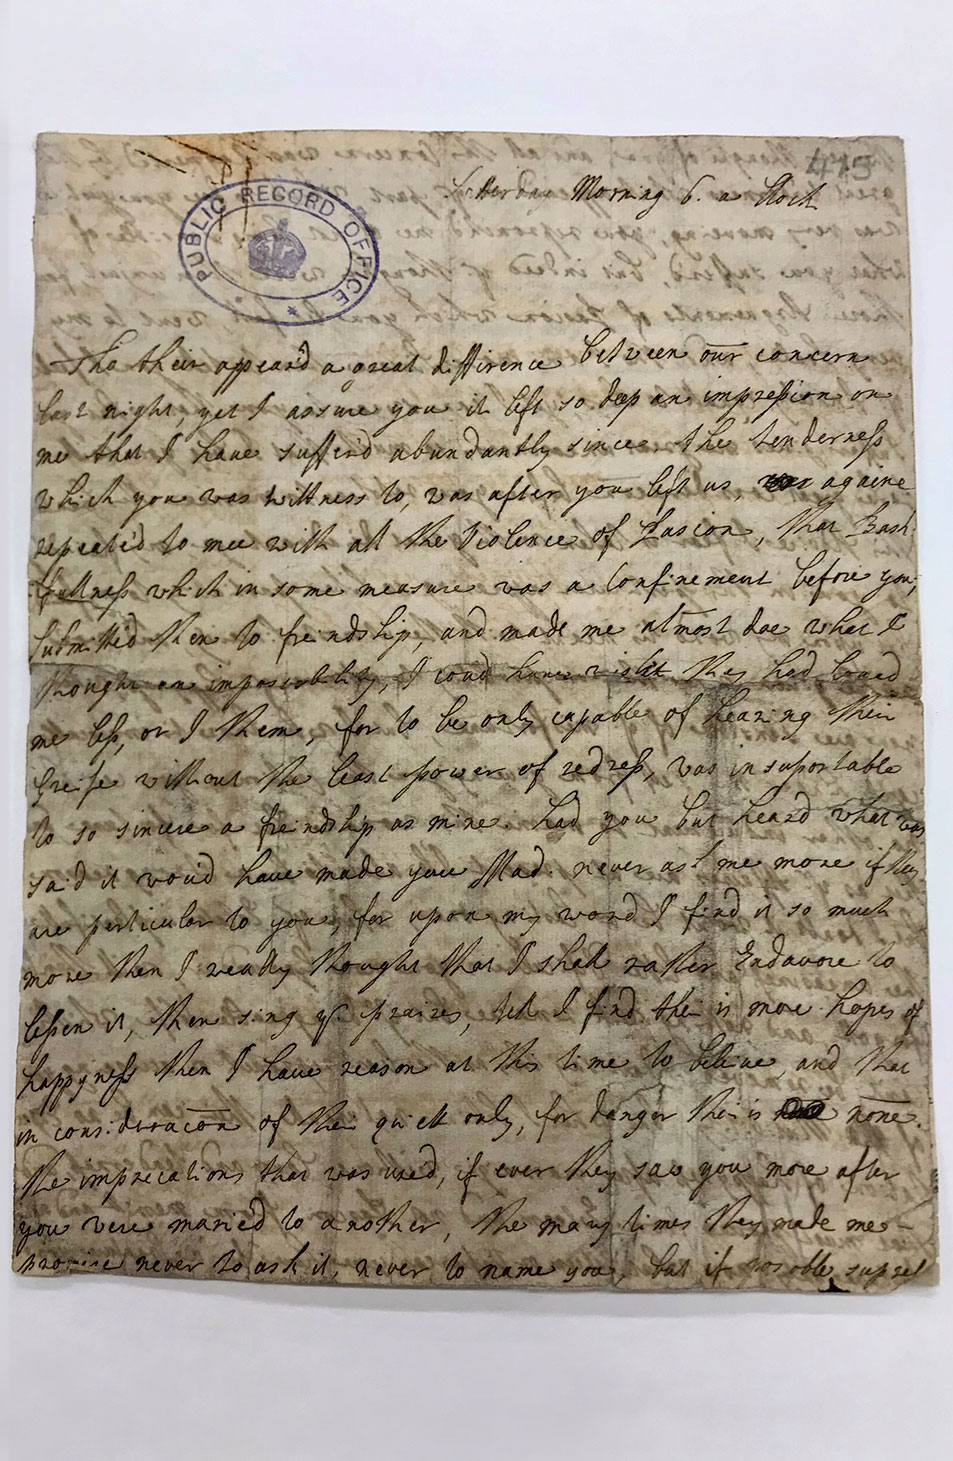 415
Satterday Morning 6. a Clock
PUBLIC RECORD OFFICE
Tho their appear'd a great diffirence between our concern
last night, yet I assure you it left so deep an impression on
me that I have suffer'd abundantly since. the tenderness
which you was wittness to, was after you left us, againe
repeated to mee with all the Violence of Pasion, that Bash-
fullness which in some measure was a Confinement before you,
submitted then to freindship, and made me almost doe what I
thought an imposibility, I coud have wisht they had loved
me less, or I them, for to be only capable of hearing their
Greife without the least power of redress, was insuportable
to so sincere a freindship as mine. had you but heard what was
said it wou'd have made you Mad. never ask me more if they
are perticular to you, for upon my word I find it so much
more then I really thought that I shall rather Endavore to
lessen it, then sing yr. praises, till I find their is more hopes of
happyness then I have reason at this time to beleive, and that
in consideracon of their quiett only, for danger their is none.
the imprecations that was used, if ever they saw you more after
you were maried to another, the many times they made me -
promise never to ask it, never to name you, but if posoble supres